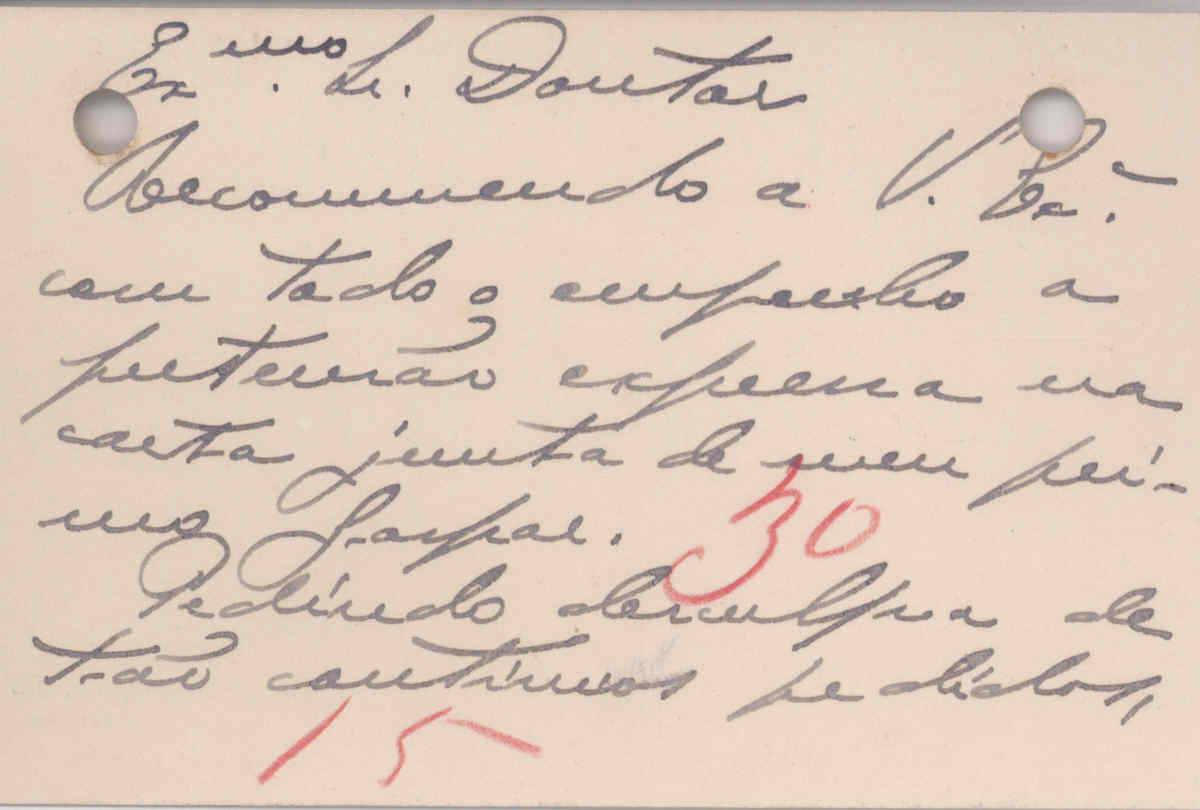 Ex.mo Sr. Doutor
Recommendo a V. Ex.a
com todo o empenho a
pretensão expressa na
carta junta de meu pri-
mo Gaspar.
30
Pedindo desculpa de
tão continuos pedidos,
15